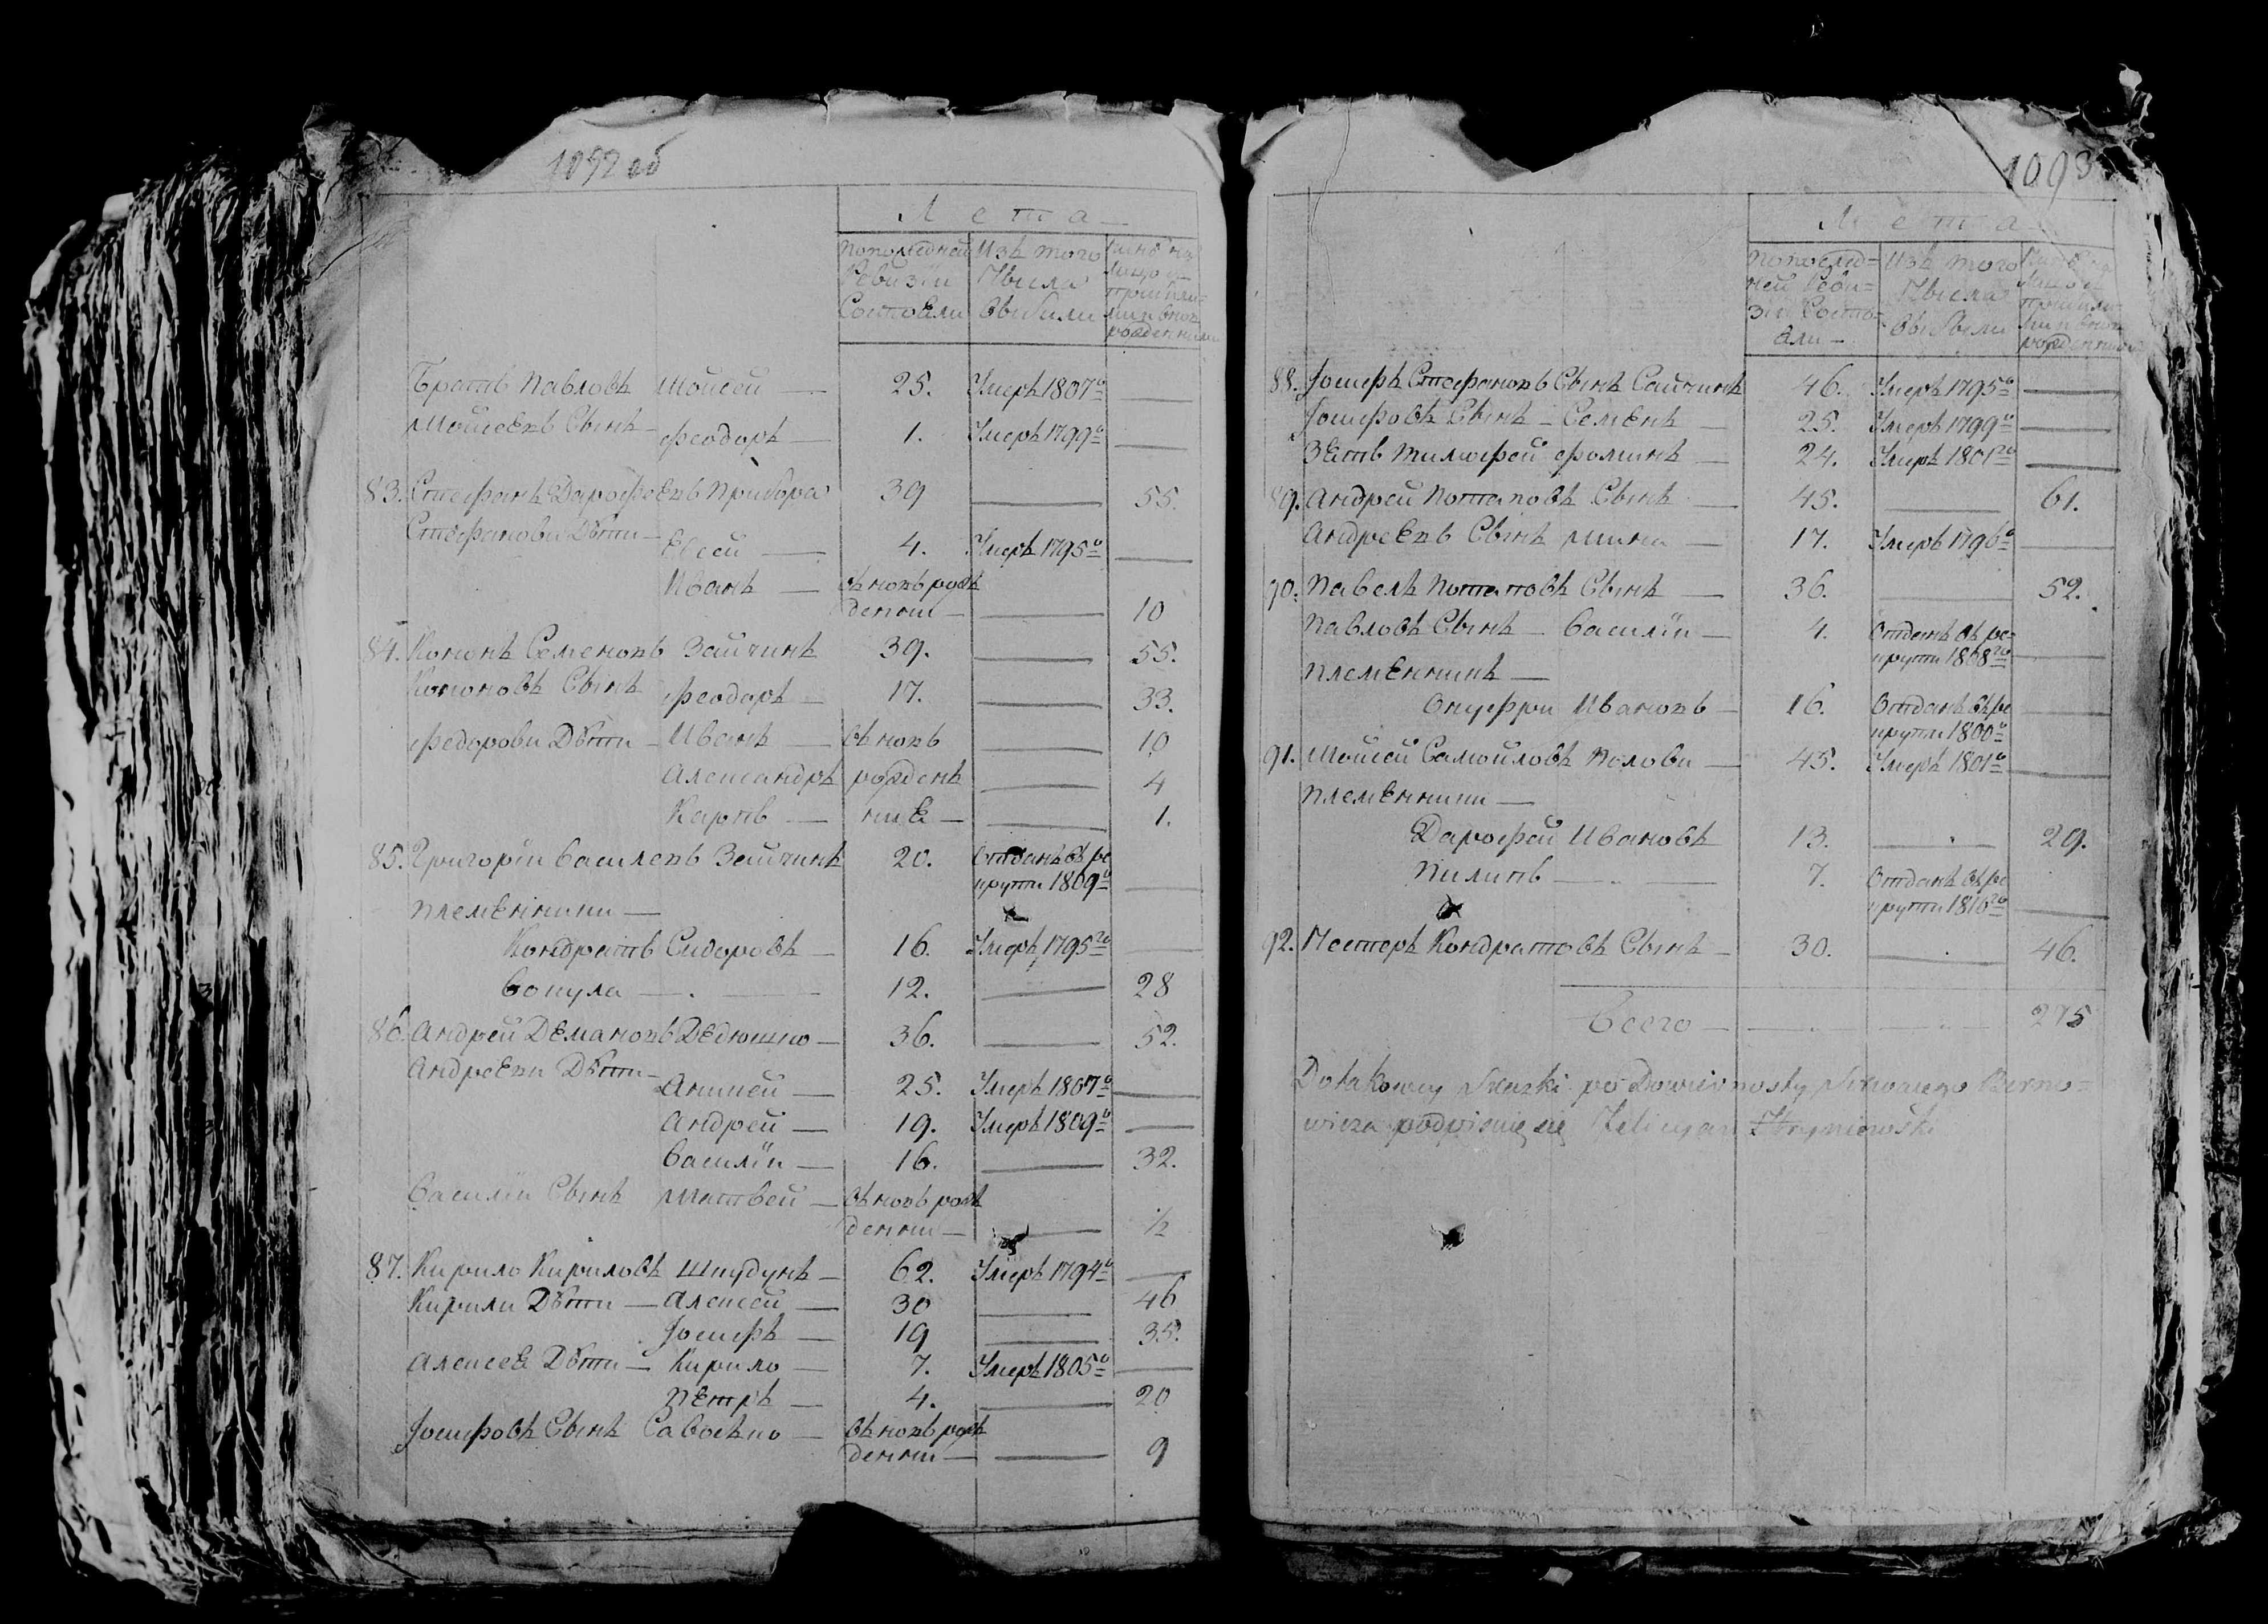 1092 об
Лета
Попоследней Ревизіи Состояли
Изъ того Числа Выбыли
лицо и рожденными
Братъ Павловъ Мойсей — 25. Умеръ 1807го —
Мойсеевъ Сынъ — Феодоръ — 1. Умеръ 1799го —
83. Стефанъ Дарофеевъ Прибора 39 — 55.
Стефановы Дѣти — Евсей — 4. Умеръ 1795го —
Иванъ — въновь рож
денни — — 10
84. Кононъ Семеновъ Зайчикъ 39. — 55.
Кононовъ Сынъ Феодоръ — 17. — 33.
Федоровы Дѣти — Иванъ — въновь — 10
Александръ рожден — 4
Карпъ — ние — — 1.
85. Григорій Василевъ Зайчикъ 20. Отданъ въ ре
круты 1809го —
Племенники —
Кондратъ Сидоровъ — 16. Умеръ 1795го —
Вокула — 12. — 28
86. Андрей Демановъ Дедюшко — 36. — 52.
Андреевы Дѣти — Аникей — 25. Умеръ 1807го —
Андрей — 19. Умеръ 1809го —
Василій — 16. — 32.
Василія Сынъ Матвей — въновь рож
денни — — ½
87. Кирило Кириловъ Шпудунъ — 62. Умеръ 1794го —
Кирилы Дѣти — Алексей — 30 — 46
Іосифъ — 19 — 35.
Алексея Дѣти — Кирило — 7. Умеръ 1805го —
Петръ — 4. — 20
Іосифовъ Сынъ Савостко — въновь рож
денни — — 9
1093
Лета
Попослед=
ней Реви=
зіи Состо=
яли —
Изъ того
Числа
Выбыли
лицо и
рожденными
88. Іосифъ Стефановъ Сынъ Сайчикъ 46. Умеръ 1795го —
Іосифовъ Сынъ — Семенъ — 25. Умеръ 1799го —
Зять Тимофей Фоминъ — 24. Умеръ 1801го —
89. Андрей Потаповъ Сынъ — 45. — 61.
Андреевъ Сынъ Мина — 17. Умеръ 1796го —
90. Павелъ Потаповъ Сынъ — 36. — 52.
Павловъ Сынъ — Василій — 4. Отданъ въ ре=
круты 1808го —
Племенникъ —
Онуфри Ивановъ — 16. Отданъ въ ре
круты 1800го —
91. Мойсей Самойловъ Полови — 45. Умеръ 1801го —
Племенники —
Дарофей Ивановъ 13. — 29.
Пилипъ — 7. Отданъ въ ре
круты 1810го —
92. Нестеръ Кондратовъ Сынъ — 30. — 46.
Всего — 275
Dotakowey Skazki po Dowierennosty Birno=
wicza podpisuię się Felicyan Hryniewski